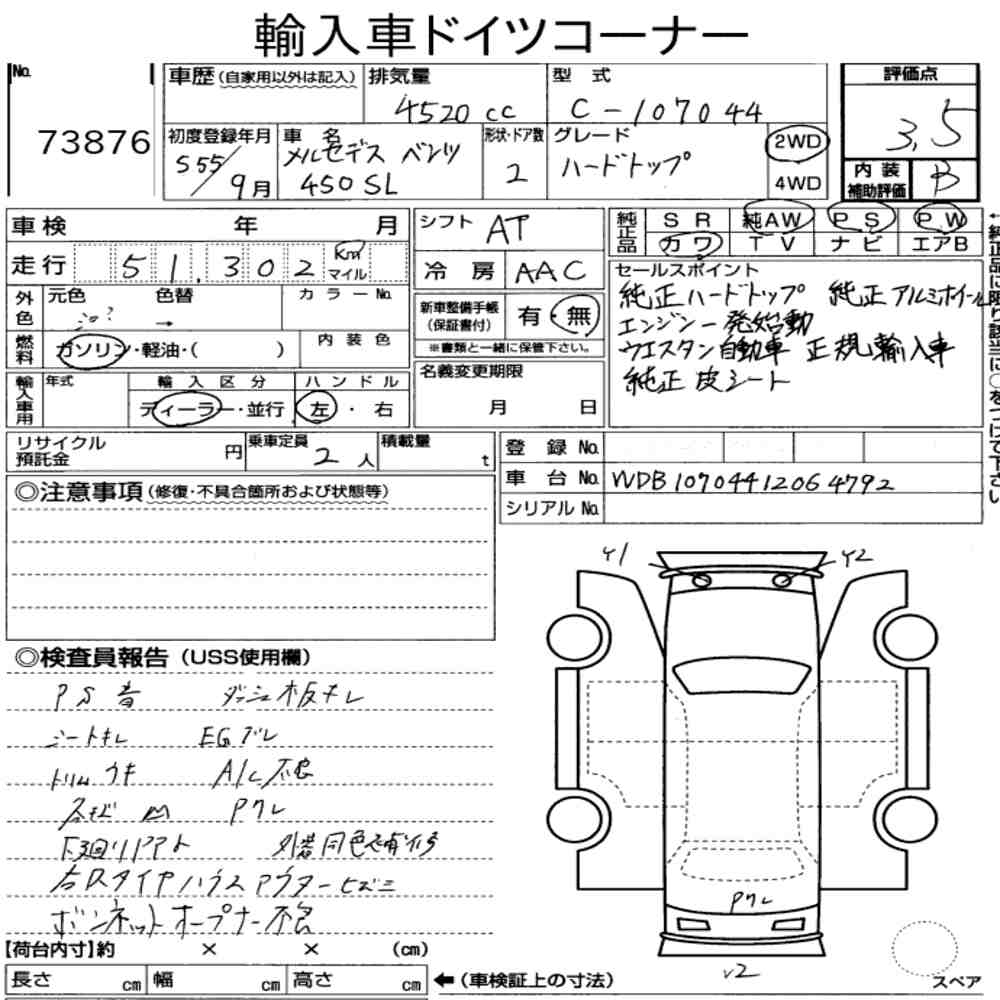 輸入車ドイツコーナー
No. 73876
車歴(自家用以外は記入) 排気量 4520cc 型式 C-107044
評価点 3,5
内装補助評価 B
初度登録年月 S55/9月 車名 メルセデス ベンツ 450SL 形状・ドア数 2 グレード ハードトップ 2WD 4WD
車検 年 月
走行 51,302 Km マイル
外色 元色 色替 → カラーNo.
燃料 ガソリン・軽油・( ) 内装色
輸入車用 年式 輸入区分 ディーラー・並行 ハンドル 左・右
シフト AT
冷房 AAC
新車整備手帳(保証書付) 有・無
※書類と一緒に保管下さい。
名義変更期限 月 日
純正品 SR 純AW PS PW
カワ TV ナビ エアB
セールスポイント
純正ハードトップ 純正アルミホイール
エンジン一発始動
ウエスタン自動車 正規輸入車
純正皮シート
リサイクル預託金 円 乗車定員 2人 積載量 t
登録No.
車台No. WDB10704412064792
シリアルNo.
◎注意事項(修復・不具合箇所および状態等)
◎検査員報告(USS使用欄)
PS音 ダッシュ板キレ
シートキレ EGブレ
トリムウキ A/C不良
キズ 凹 Pクレ
下廻りサビ 外装同色補修
ボンネットオープナー不良
Y1 Y2
Pクレ
V2
スペア
【荷台内寸】約 × × (cm)
長さ cm 幅 cm 高さ cm ←(車検証上の寸法)